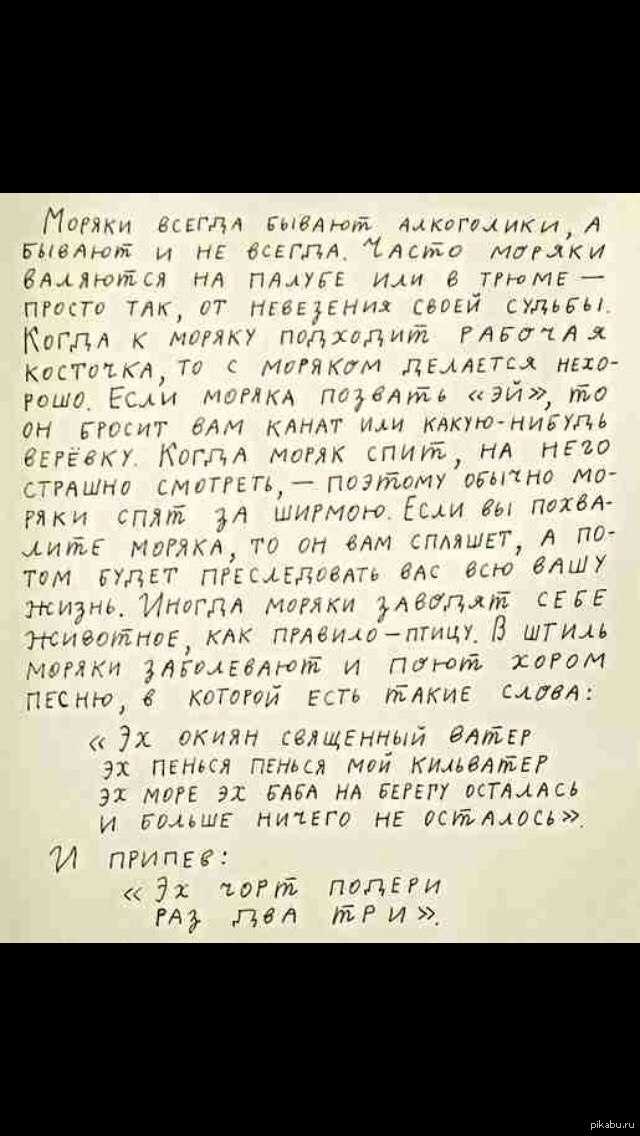 Моряки всегда бывают алкоголики, а
бывают и не всегда. Часто моряки
валяются на палубе или в трюме —
просто так, от невезения своей судьбы.
Когда к моряку подходит рабочая
косточка, то с моряком делается нехо-
рошо. Если моряка позвать «эй», то
он бросит вам канат или какую-нибудь
верёвку. Когда моряк спит, на него
страшно смотреть, — поэтому обычно мо-
ряки спят за ширмою. Если вы похва-
лите моряка, то он вам спляшет, а по-
том будет преследовать вас всю вашу
жизнь. Иногда моряки заводят себе
животное, как правило — птицу. В штиль
моряки заболевают и поют хором
песню, в которой есть такие слова:
«Эх окиян священный ватер
эх пенься пенься мой кильватер
эх море эх баба на берегу осталась
и больше ничего не осталось».
И припев:
«Эх чорт подери
раз два три».
pikabu.ru